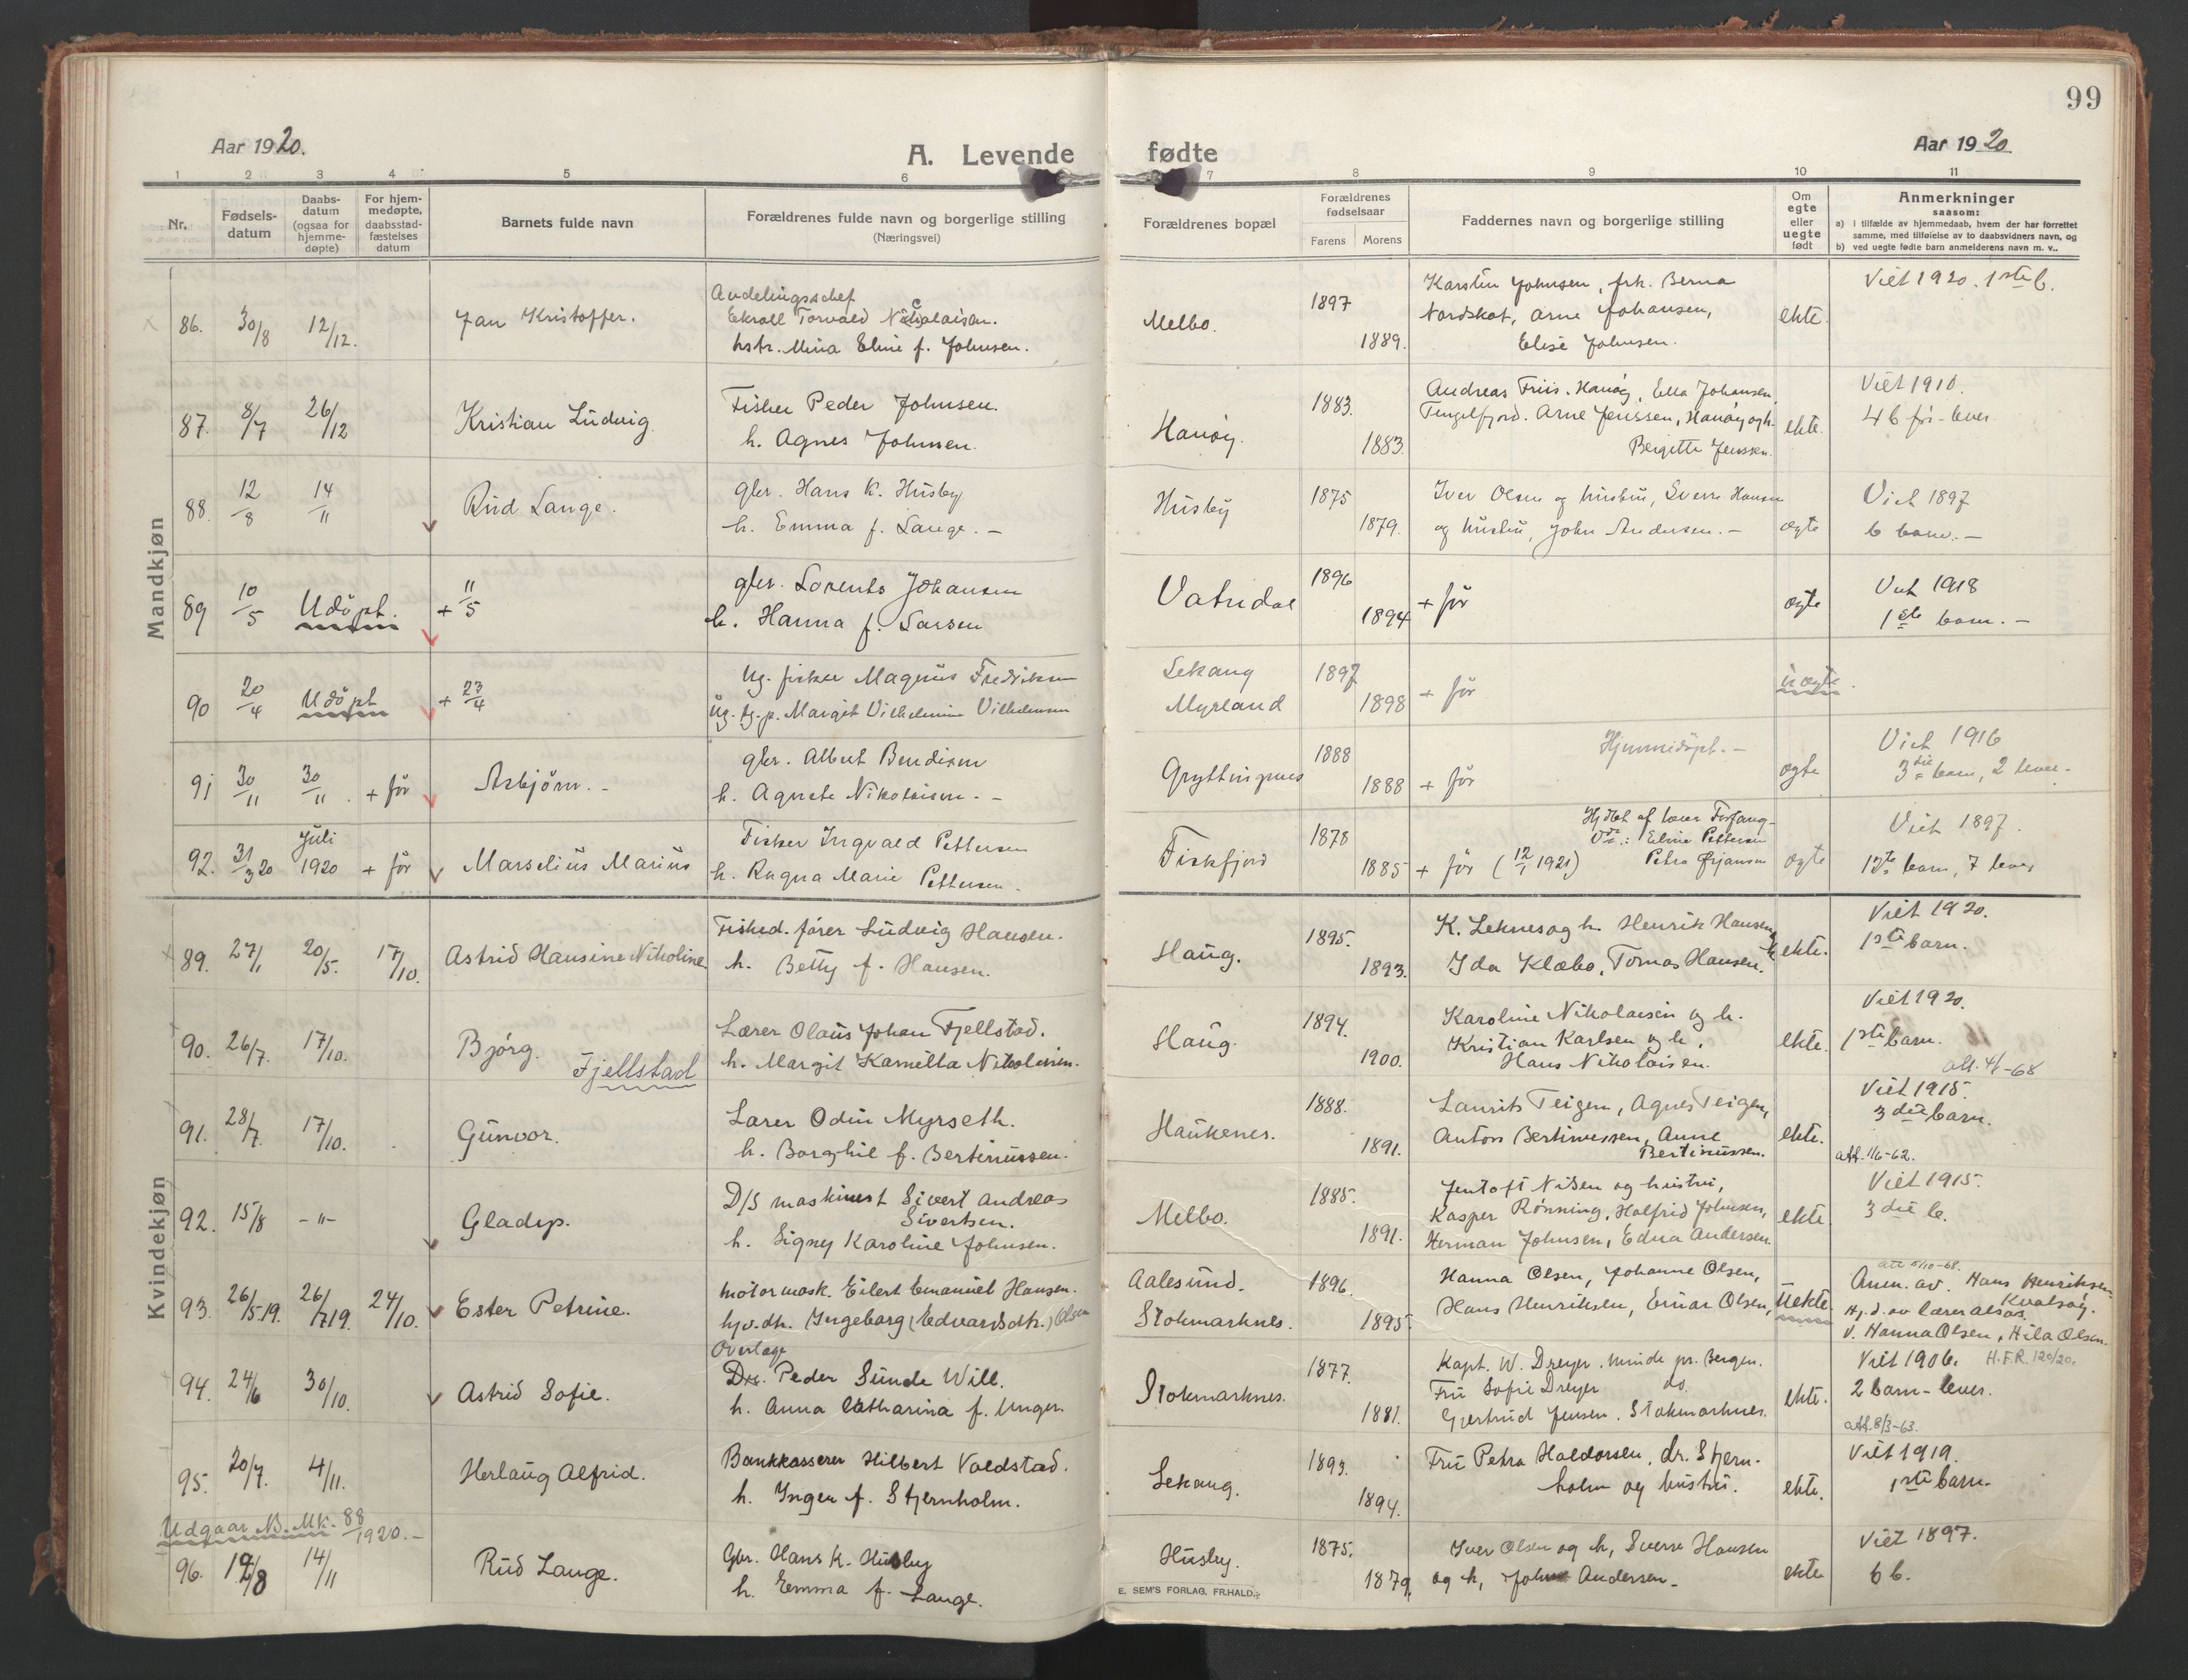 99
Aar 1920.
A. Levende fødte
Aar 1920
1 2 3 4 5 6 7 8 9 10 11
Nr.
Fødsels-
datum
Daabs-
datum
(ogsaa for
hjemme-
døpte)
For hjem-
medøpte,
daabsstad-
fæstelses
datum
Barnets fulde navn
Forældrenes fulde navn og borgerlige stilling
(Næringsvei)
Forældrenes bopæl
Forældrenes
fødselsaar
Farens Morens
Faddernes navn og borgerlige stilling
Om
egte
eller
uegte
født
Anmerkninger
saasom:
a) i tilfælde av hjemmedaab, hvem der har forrettet
samme, med tilføielse av to daabsvidners navn, og
b) ved uegte fødte barn anmelderens navn m. v..
Mandkjøn
86. 30/8 12/12. Jan Kristoffer.
Avdelingschef
Ekroll Torvald Nicolaisen.
hstr. Mina Eline f. Johnsen.
Melbo. 1897 1889.
Karstein Johnsen, frk. Berna
Nordskot, Arne Johansen,
Elise Johnsen.
ekte.
Viet 1920. 1ste b.
87. 8/7 26/12 Kristian Ludvig
Fisker Peder Johnsen.
h. Agnes Johnsen.
Hanøy. 1883. 1883.
Andreas Friis. Hanøy, Ella Johansen,
Tengelfjord. Arne Jenssen, Hanøy og h.
Bergitte Jenssen.
ekte.
Viet 1910.
4 b før - lever
88. 12/8 14/11 Rud Lange.
gbr. Hans K. Husby
h. Emma f. Lange. -
Husby 1875 1879.
Iver Olsen og hustru, Sverre Hansen
og hustru, John Andersen. -
ægte
Viet 1897
6 barn. -
89 10/5 Udöpt. + 11/5
gbr. Lorents Johansen
h. Hanna f. Larsen
Vatndal 1896 1894
+ för
ægte
Viet 1918
1ste barn. -
90 20/4 Udöpt + 23/4
Ug. fisker Magnus Fredriksen
Ug. tj.p. Margit Vilhelmine Vilhelmsen
Lekang
Myrland 1897 1898
+ för
uægte.
91 30/11 30/11. + för Asbjörn. -
gbr. Albert Bendiksen
h. Agnete Nikolaisen. -
Gryttingnes 1888 1888
+ för
Hjemmedöpt. -
ægte
Viet 1916
3die barn, 2 lever.
92. 31/3 20 Juli 1920 + för Marselius Marius
Fisker Ingvald Pettersen
h. Ragna Marie Pettersen.
Fiskfjord 1878 1885
+ för (12/1 1921)
Hjdbt af lærer Forfang
Vidn.: Eline Pettersen
Petra Ørjansen
ægte
Viet 1897.
12te barn, 7 lever
Kvindekjøn
89. 27/1 20/5. 17/10. Astrid Hansine Nikoline.
Fisked. fører Ludvig Hansen.
h. Betty f. Hansen.
Haug. 1895. 1893.
K. Leknes og h. Henrik Hansen &
Ida Klæbo, Tomas Hansen.
ekte.
Viet 1920.
1ste barn.
90. 26/7. 17/10. Bjørg. Fjellstad
Lærer Olaus Johan Fjellstad.
h. Margit Kamilla Nikolaisen.
Haug. 1894. 1900.
Karoline Nikolaisen og h.
Kristian Karlsen og h.
Hans Nikolaisen.
ekte.
Viet 1920.
1ste barn.
att. 4/1-68
91. 28/7. 17/10. Gunvor.
Lærer Odin Myrseth.
h. Borghil f. Bertinussen.
Haukenes. 1888. 1891.
Laurits Teigen, Agnes Teigen,
Anton Bertinussen, Anne
Bertinussen.
ekte.
Viet 1915.
3die barn.
att. 1/6-62.
92. 15/8 -"- Gladys.
D/S maskinist Sivert Andreas
Sivertsen.
h. Signy Karoline Johnsen.
Melbo. 1885. 1891.
Jentoft Nilsen og hustru,
Kasper Rønning, Halfrid Johnsen,
Herman Johnsen, Edna Andersen.
ekte.
Viet 1915.
3die b.
att 5/10-68.
93. 26/5.19. 26/7 19. 24/10. Ester Petrine.
motormask. Eilert Emanuel Hansen.
hjv.dtr. Ingeborg (Edvardsdtr.) Olsen
Aalesund. Stokmarknes. 1896. 1895.
Hanna Olsen, Johanne Olsen,
Hans Henriksen, Einar Olsen,
Uekte.
Anm. av Hans Henriksen
Kvalsøy.
Hj.d. av lærer Alsos.
v. Hanna Olsen, Hila Olsen.
94. 24/6 30/10. Astrid Sofie.
Overlæge
Dr. Peder Sunde Will.
h. Anna Catharina f. Unger.
Stokmarknes. 1877. 1881.
Kapt. W. Dreyer. Minde pr. Bergen.
Fru Sofie Dreyer do.
Gjertrud Jensen. Stokmarknes.
ekte.
Viet 1906. H.F.R. 120/20.
2 barn - lever.
att. 8/3-63.
95. 20/7. 4/11. Herlaug Alfrid.
Bankkasserer Hilbert Valdstad.
h. Inger f. Stjernholm.
Lekang. 1893. 1894.
Fru Petra Haldorsen, dr. Stjern-
holm og hustru.
ekte.
Viet 1919.
1ste barn.
Udgaar N. Mk. 88/1920. -
96. 12/8 14/11 Rud Lange.
Gbr. Hans K. Husby
h. Emma f. Lange.
Husby. 1875. 1879.
Iver Olsen og h, Sverre Hansen
og h, John Andersen.
ekte
Viet 1897.
6 b.
E. SEM'S FORLAG, FR.HALD.